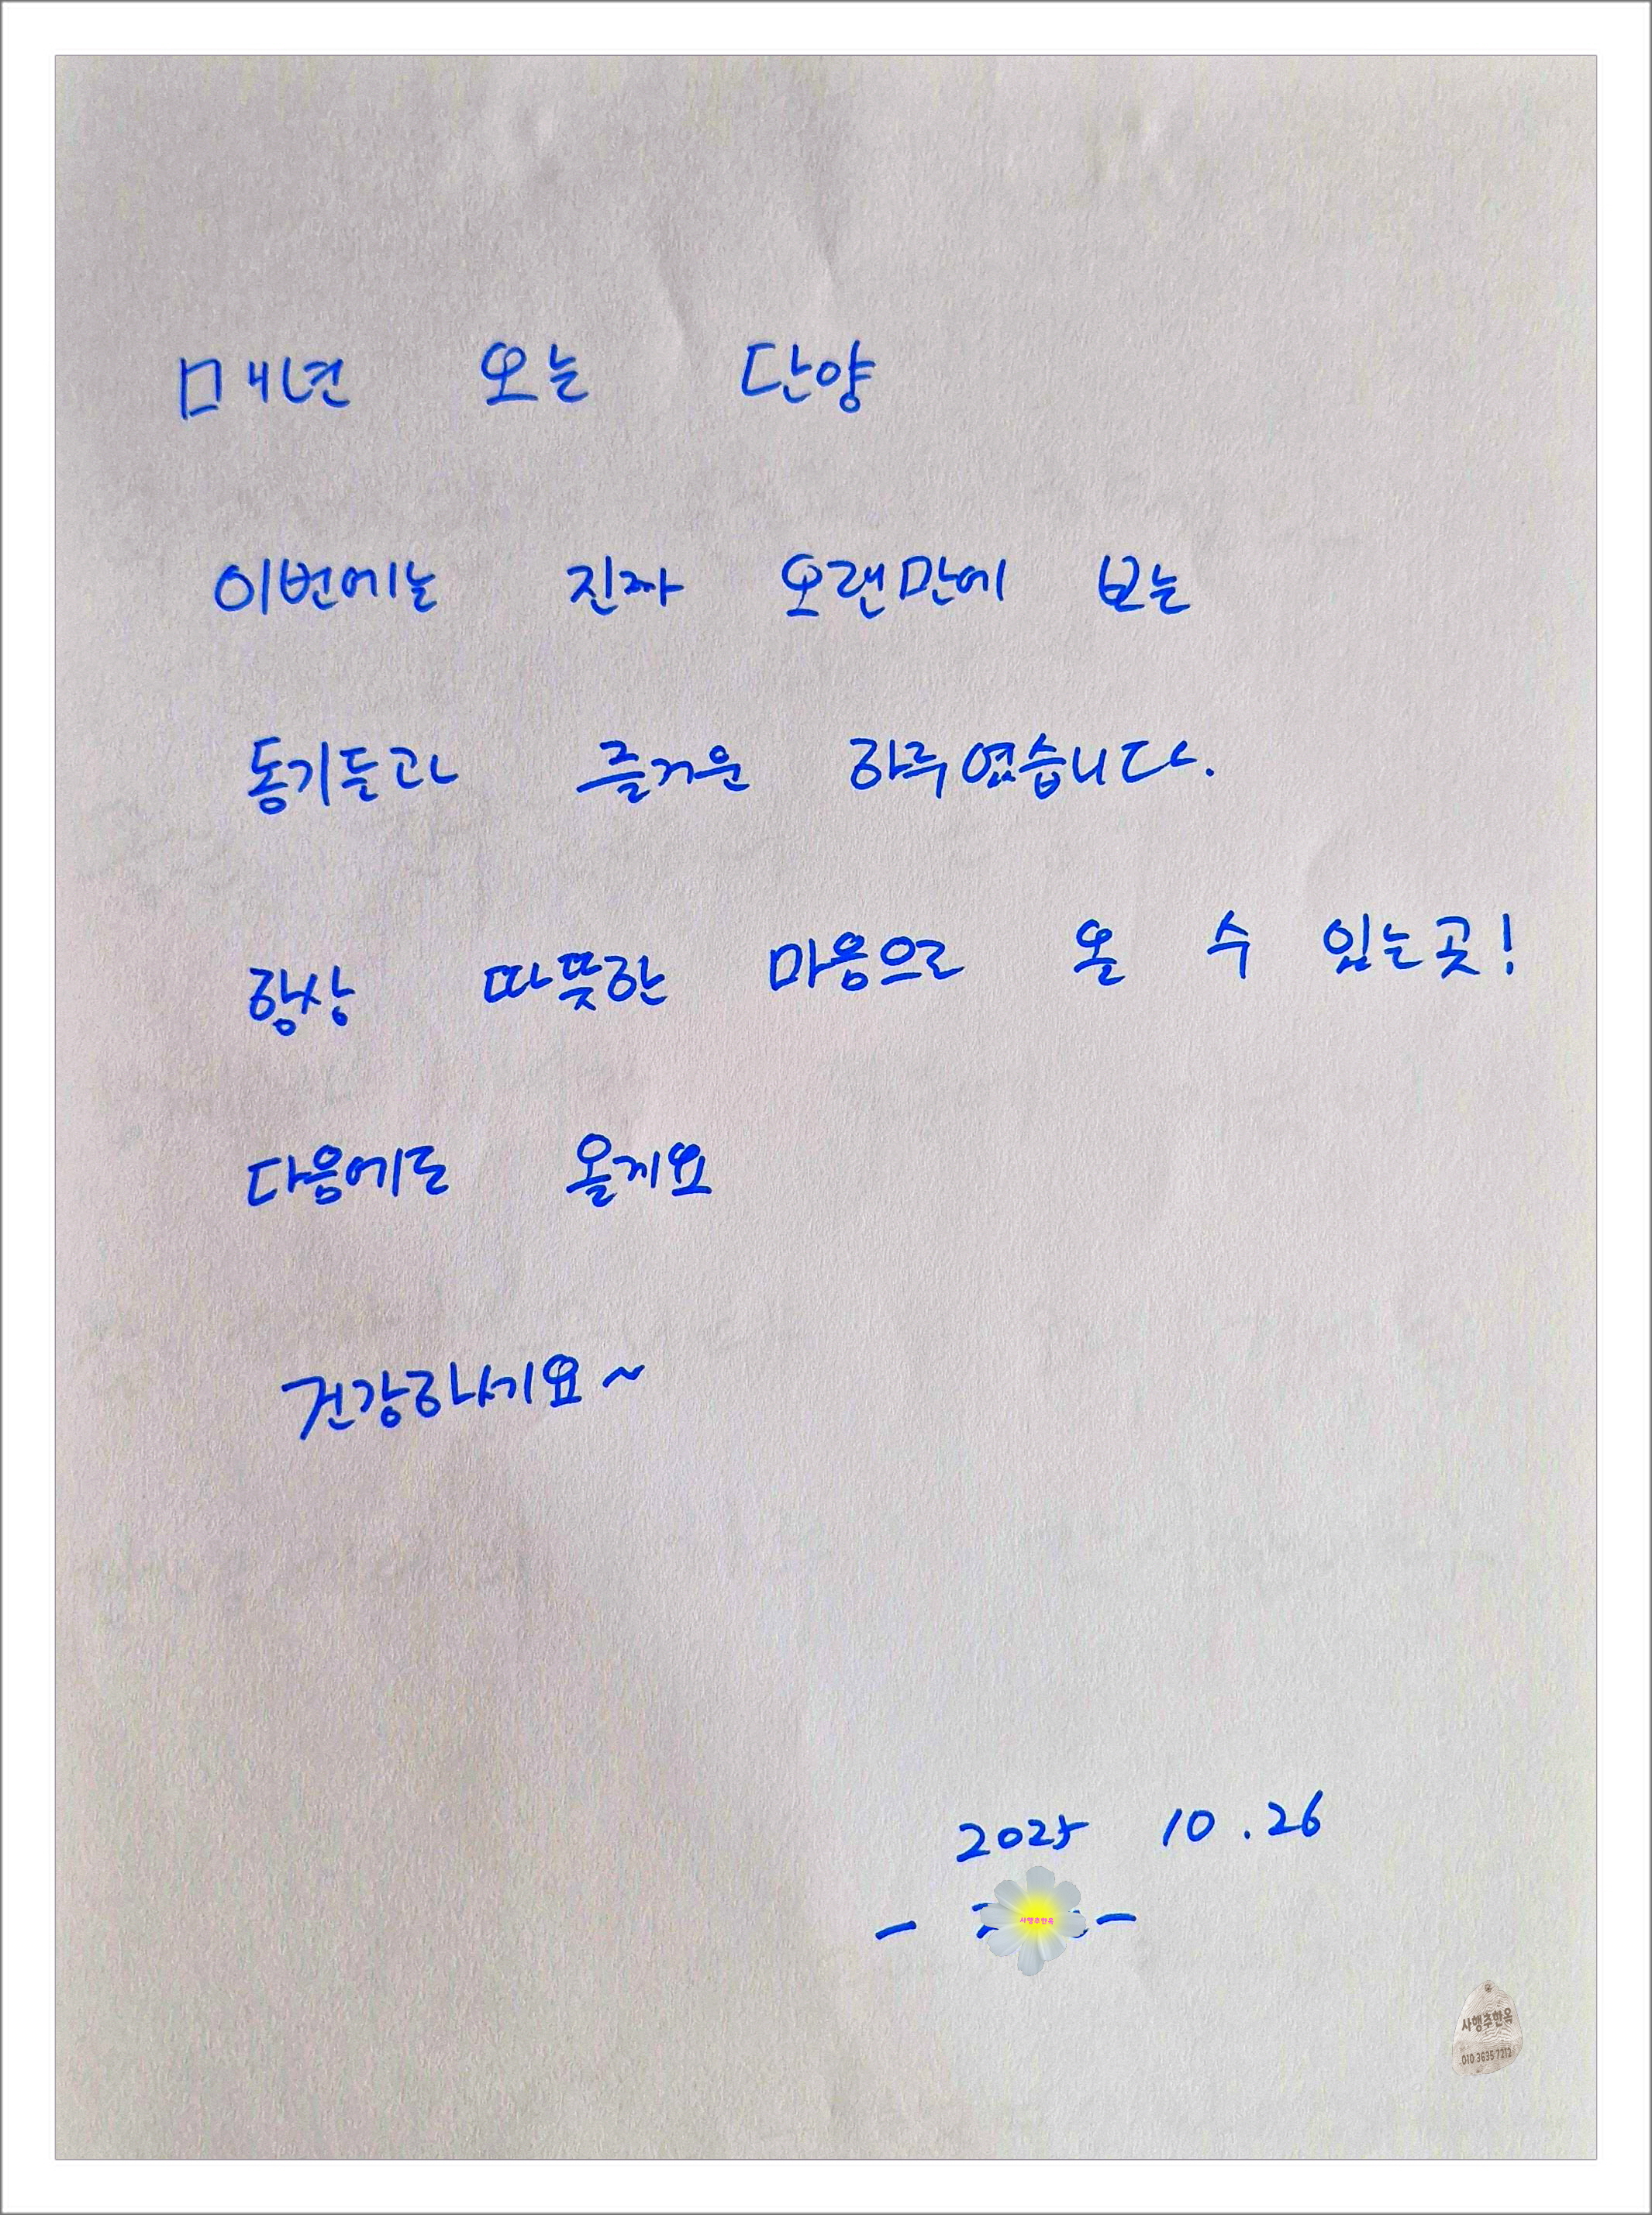 매년 오는 단양
이번에는 진짜 오랜만에 보는
동기들과 즐거운 하루였습니다.
항상 따뜻한 마음으로 올 수 있는곳!
다음에도 올게요
건강하세요~
2025 10.26
사행추한옥
사행추한옥
010 3635 7212